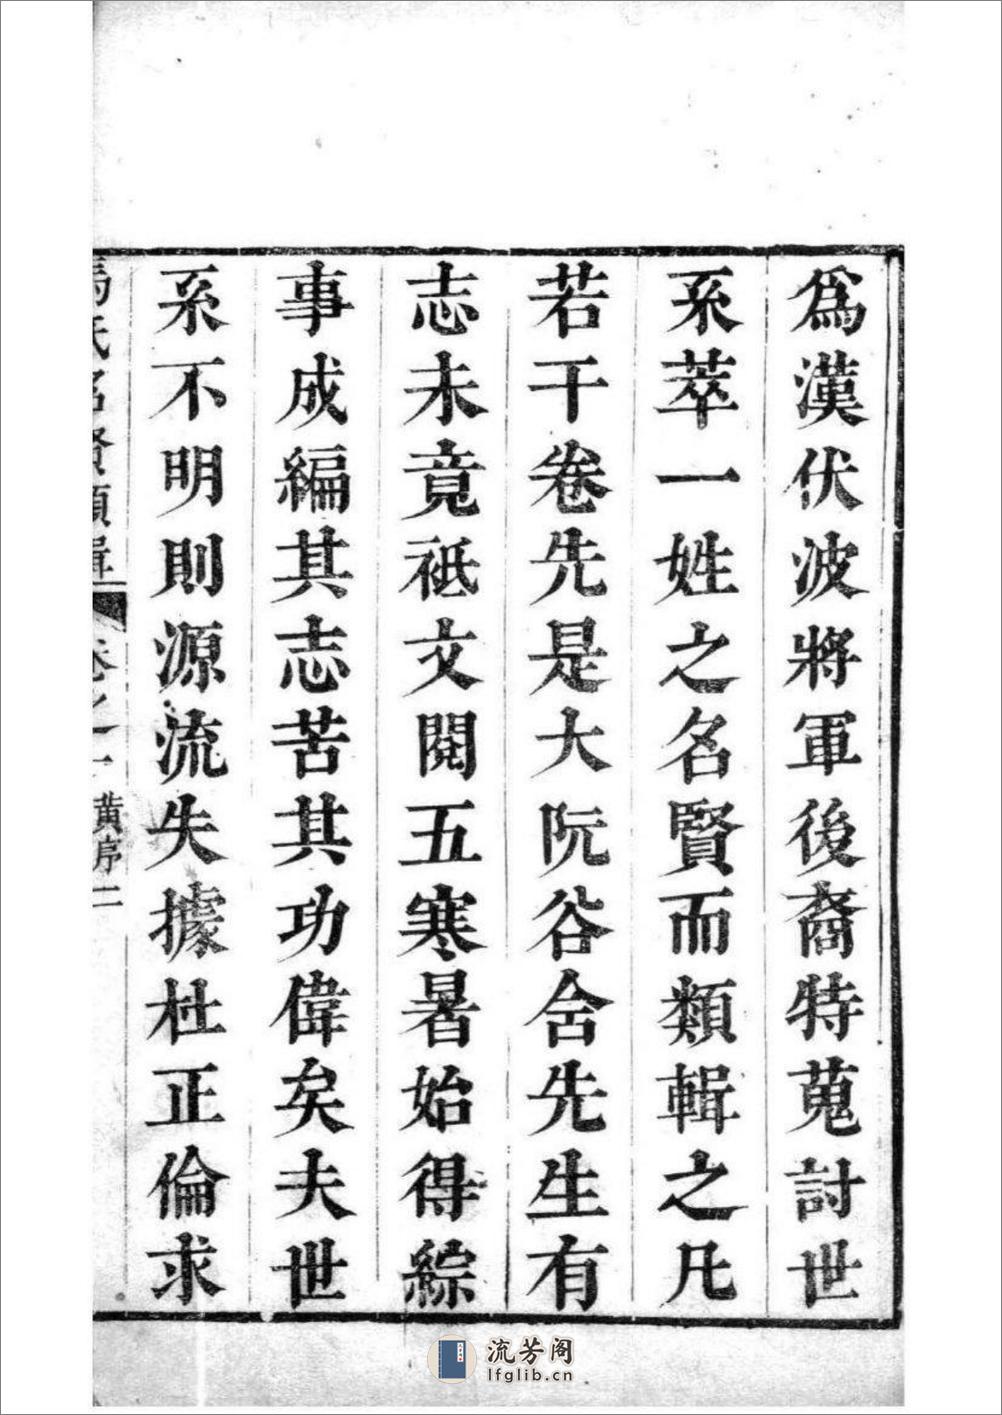 爲漢伏波將軍後裔特蒐討世
系萃一姓之名賢而類輯之凡
若干卷先是大阮谷含先生有
志未竟祇文閱五寒暑始得綜
事成編其志苦其功偉矣夫世
系不明則源流失據杜正倫求
馬氏名賢類輯 卷之一 黄序 二
流芳阁
lfglib.cn